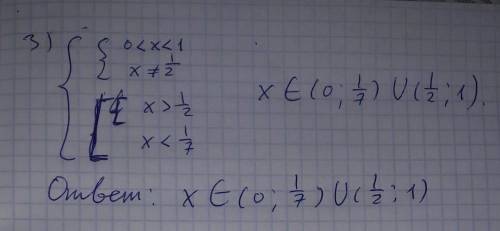 3) 0 < x < 1
x ≠ 1/2
x > 1/2
x ∈ (0; 1/7) ∪ (1/2; 1).
x < 1/7
Ответ: x ∈ (0; 1/7) ∪ (1/2; 1)